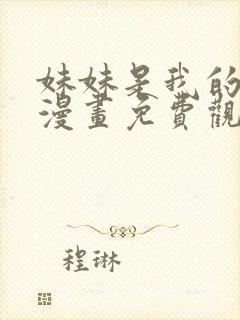 妹妹是我的
漫畫免費觀
程琳